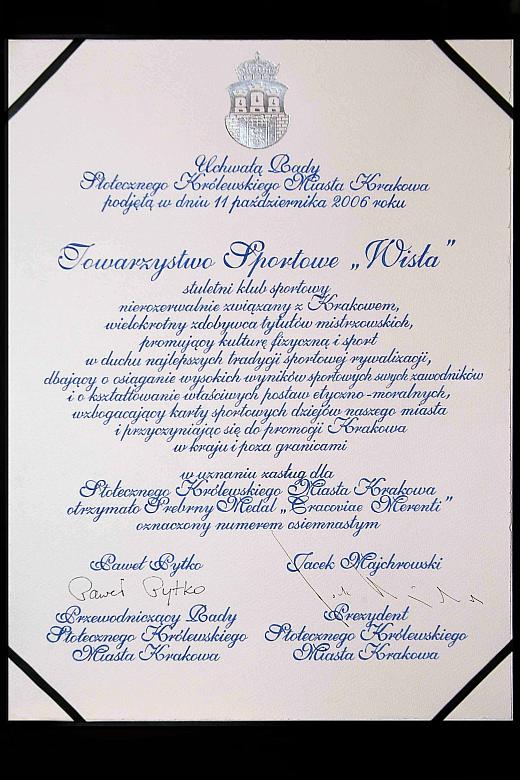 Uchwałą Rady
Stołecznego Królewskiego Miasta Krakowa
podjętą w dniu 11 października 2006 roku
Towarzystwo Sportowe „Wisła”
stuletni klub sportowy
nierozerwalnie związany z Krakowem,
wielokrotny zdobywca tytułów mistrzowskich,
promujący kulturę fizyczną i sport
w duchu najlepszych tradycji sportowej rywalizacji,
dbający o osiąganie wysokich wyników sportowych swych zawodników
i o kształtowanie właściwych postaw etyczno-moralnych,
wzbogacający karty sportowych dziejów naszego miasta
i przyczyniając się do promocji Krakowa
w kraju i poza granicami
w uznaniu zasług dla
Stołecznego Królewskiego Miasta Krakowa
otrzymało Srebrny Medal „Cracoviae Merenti”
oznaczony numerem osiemnastym
Paweł Pytko Jacek Majchrowski
Paweł Pytko
Przewodniczący Rady Prezydent
Stołecznego Królewskiego Stołecznego Królewskiego
Miasta Krakowa Miasta Krakowa